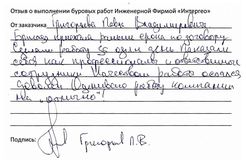 Отзыв о выполнении буровых работ Инженерной Фирмой «Интергео»
От заказчика: Григорьева Павел Владимирович
Бригада приехала раньше срока по договору.
Сделали работу за один день. Показали
себя как профессионалы и ответственные
сотрудники. Качеством работы остался
доволен. Оцениваю работу компании
на "отлично"!
Подпись: Григорьев П.В.